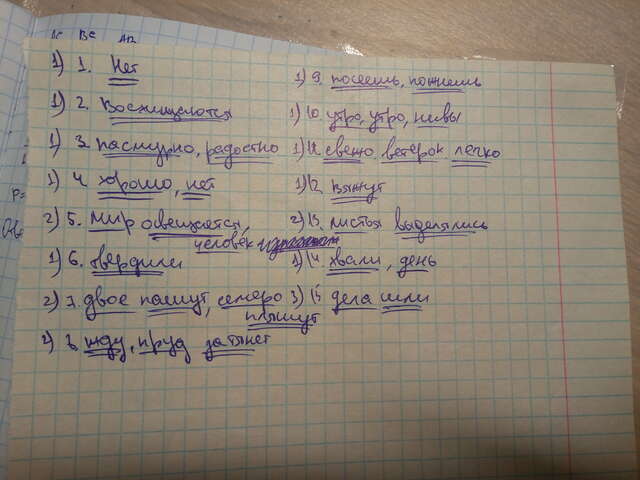 1) 1. Нет
1) 2. Восхищаются
1) 3. пасмурно, радостно
1) 4. хорошо, нет
2) 5. Мир освещается,
человек
1) 6. твердили
2) 7. двое пашут, семеро
пляшут
2) 8. жду, пруд затянет
1) 9. посеешь, пожнешь
1) 10 утро, утро, нивы
1) 11 свежо. ветерок легко
1) 12 выжгут
2) 13. листья выделялись
1) 14 хвали, день
3) 15 дела шли